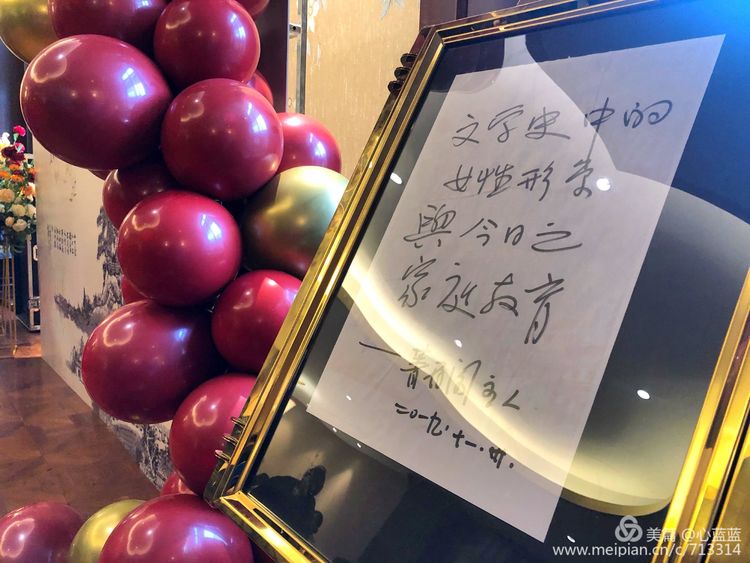 文学史中的
女性形象
與今日之
家庭教育
二〇一九.十一.
美篇 @心蓝蓝
www.meipian.cn/c/713314